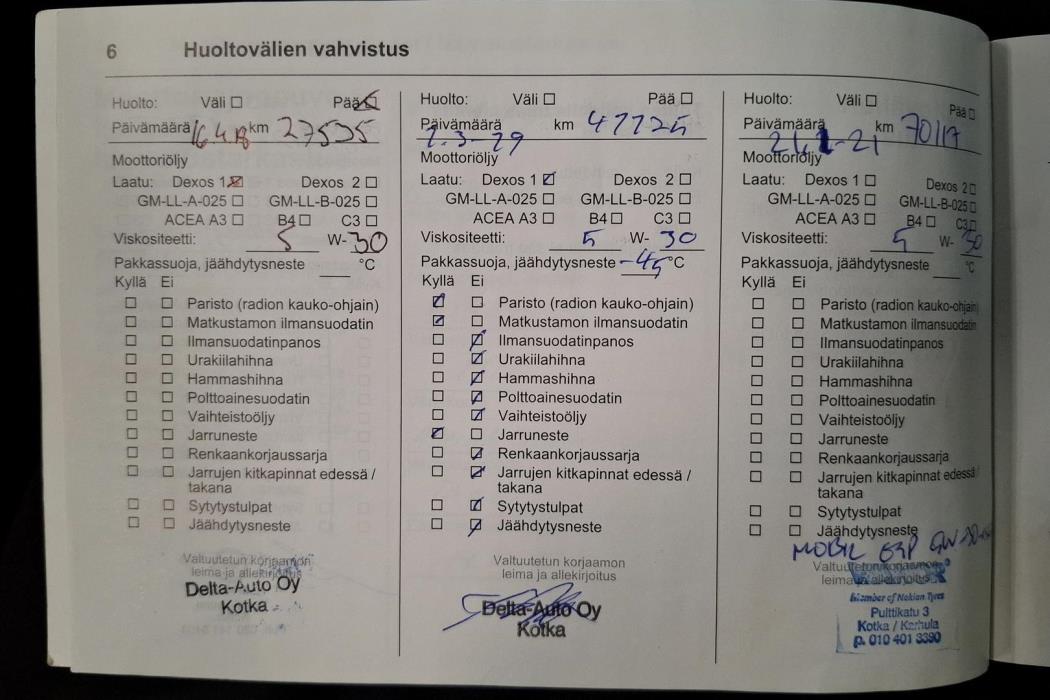 6 Huoltovälien vahvistus
Huolto: Väli ☐ Pää ☒
Päivämäärä 16.4.18 km 27535
Moottoriöljy
Laatu: Dexos 1 ☒ Dexos 2 ☐
GM-LL-A-025 ☐ GM-LL-B-025 ☐
ACEA A3 ☐ B4 ☐ C3 ☐
Viskositeetti: 5 W- 30
Pakkassuoja, jäähdytysneste °C
Kyllä Ei
☐ ☐ Paristo (radion kauko-ohjain)
☐ ☐ Matkustamon ilmansuodatin
☐ ☐ Ilmansuodatinpanos
☐ ☐ Urakiilahihna
☐ ☐ Hammashihna
☐ ☐ Polttoainesuodatin
☐ ☐ Vaihteistoöljy
☐ ☐ Jarruneste
☐ ☐ Renkaankorjaussarja
☐ ☐ Jarrujen kitkapinnat edessä /
takana
☐ ☐ Sytytystulpat
☐ ☐ Jäähdytysneste
Valtuutetun korjaamon
leima ja allekirjoitus
Delta-Auto Oy
Kotka
Huolto: Väli ☐ Pää ☐
Päivämäärä km
Moottoriöljy
Laatu: Dexos 1 ☑ Dexos 2 ☐
GM-LL-A-025 ☐ GM-LL-B-025 ☐
ACEA A3 ☐ B4 ☐ C3 ☐
Viskositeetti: 5 W- 30
Pakkassuoja, jäähdytysneste -45 °C
Kyllä Ei
☑ ☐ Paristo (radion kauko-ohjain)
☑ ☐ Matkustamon ilmansuodatin
☐ ☑ Ilmansuodatinpanos
☐ ☑ Urakiilahihna
☐ ☑ Hammashihna
☐ ☑ Polttoainesuodatin
☐ ☑ Vaihteistoöljy
☑ ☐ Jarruneste
☐ ☑ Renkaankorjaussarja
☐ ☑ Jarrujen kitkapinnat edessä /
takana
☐ ☑ Sytytystulpat
☐ ☑ Jäähdytysneste
Valtuutetun korjaamon
leima ja allekirjoitus
Delta-Auto Oy
Kotka
Huolto: Väli ☐ Pää ☐
Päivämäärä km
Moottoriöljy
Laatu: Dexos 1 ☐ Dexos 2 ☐
GM-LL-A-025 ☐ GM-LL-B-025 ☐
ACEA A3 ☐ B4 ☐ C3 ☐
Viskositeetti: 5 W- 30
Pakkassuoja, jäähdytysneste °C
Kyllä Ei
☐ ☐ Paristo (radion kauko-ohjain)
☐ ☐ Matkustamon ilmansuodatin
☐ ☐ Ilmansuodatinpanos
☐ ☐ Urakiilahihna
☐ ☐ Hammashihna
☐ ☐ Polttoainesuodatin
☐ ☐ Vaihteistoöljy
☐ ☐ Jarruneste
☐ ☐ Renkaankorjaussarja
☐ ☐ Jarrujen kitkapinnat edessä /
takana
☐ ☐ Sytytystulpat
☐ ☐ Jäähdytysneste
MOBIL ESP
Valtuutetun korjaamon
leima ja allekirjoitus
Member of Nokian Tyres
Pulttikatu 3
Kotka / Karhula
p. 010 401 3390